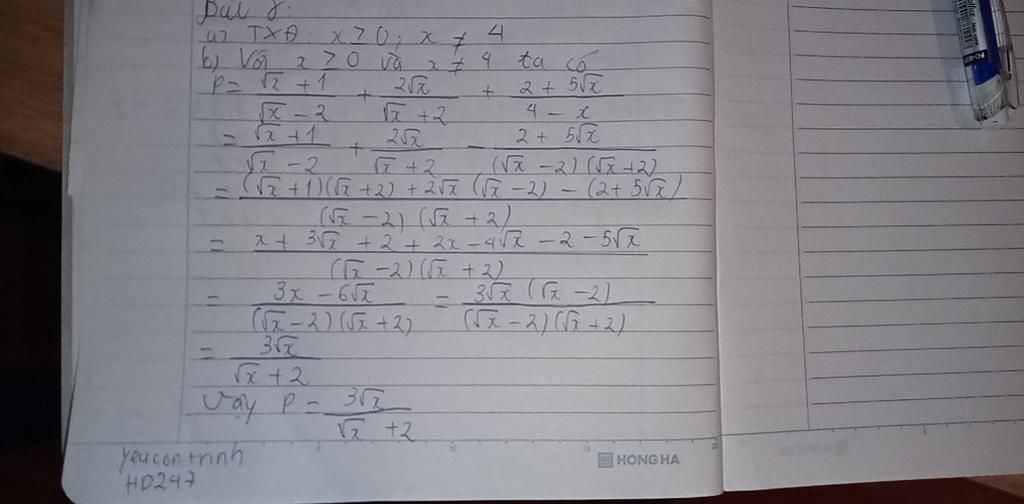 Bài 8:
a) TXĐ: x ≥ 0; x ≠ 4
b) Với x ≥ 0 và x ≠ 4 ta có
P = (√x + 1)/(√x - 2) + 2√x/(√x + 2) + (2 + 5√x)/(4 - x)
= (√x + 1)/(√x - 2) + 2√x/(√x + 2) - (2 + 5√x)/((√x - 2)(√x + 2))
= ((√x + 1)(√x + 2) + 2√x(√x - 2) - (2 + 5√x))/((√x - 2)(√x + 2))
= (x + 3√x + 2 + 2x - 4√x - 2 - 5√x)/((√x - 2)(√x + 2))
= (3x - 6√x)/((√x - 2)(√x + 2)) = (3√x(√x - 2))/((√x - 2)(√x + 2))
= 3√x/(√x + 2)
Vậy P = 3√x/(√x + 2)
HONG HA
yeucon+ninh
HD247